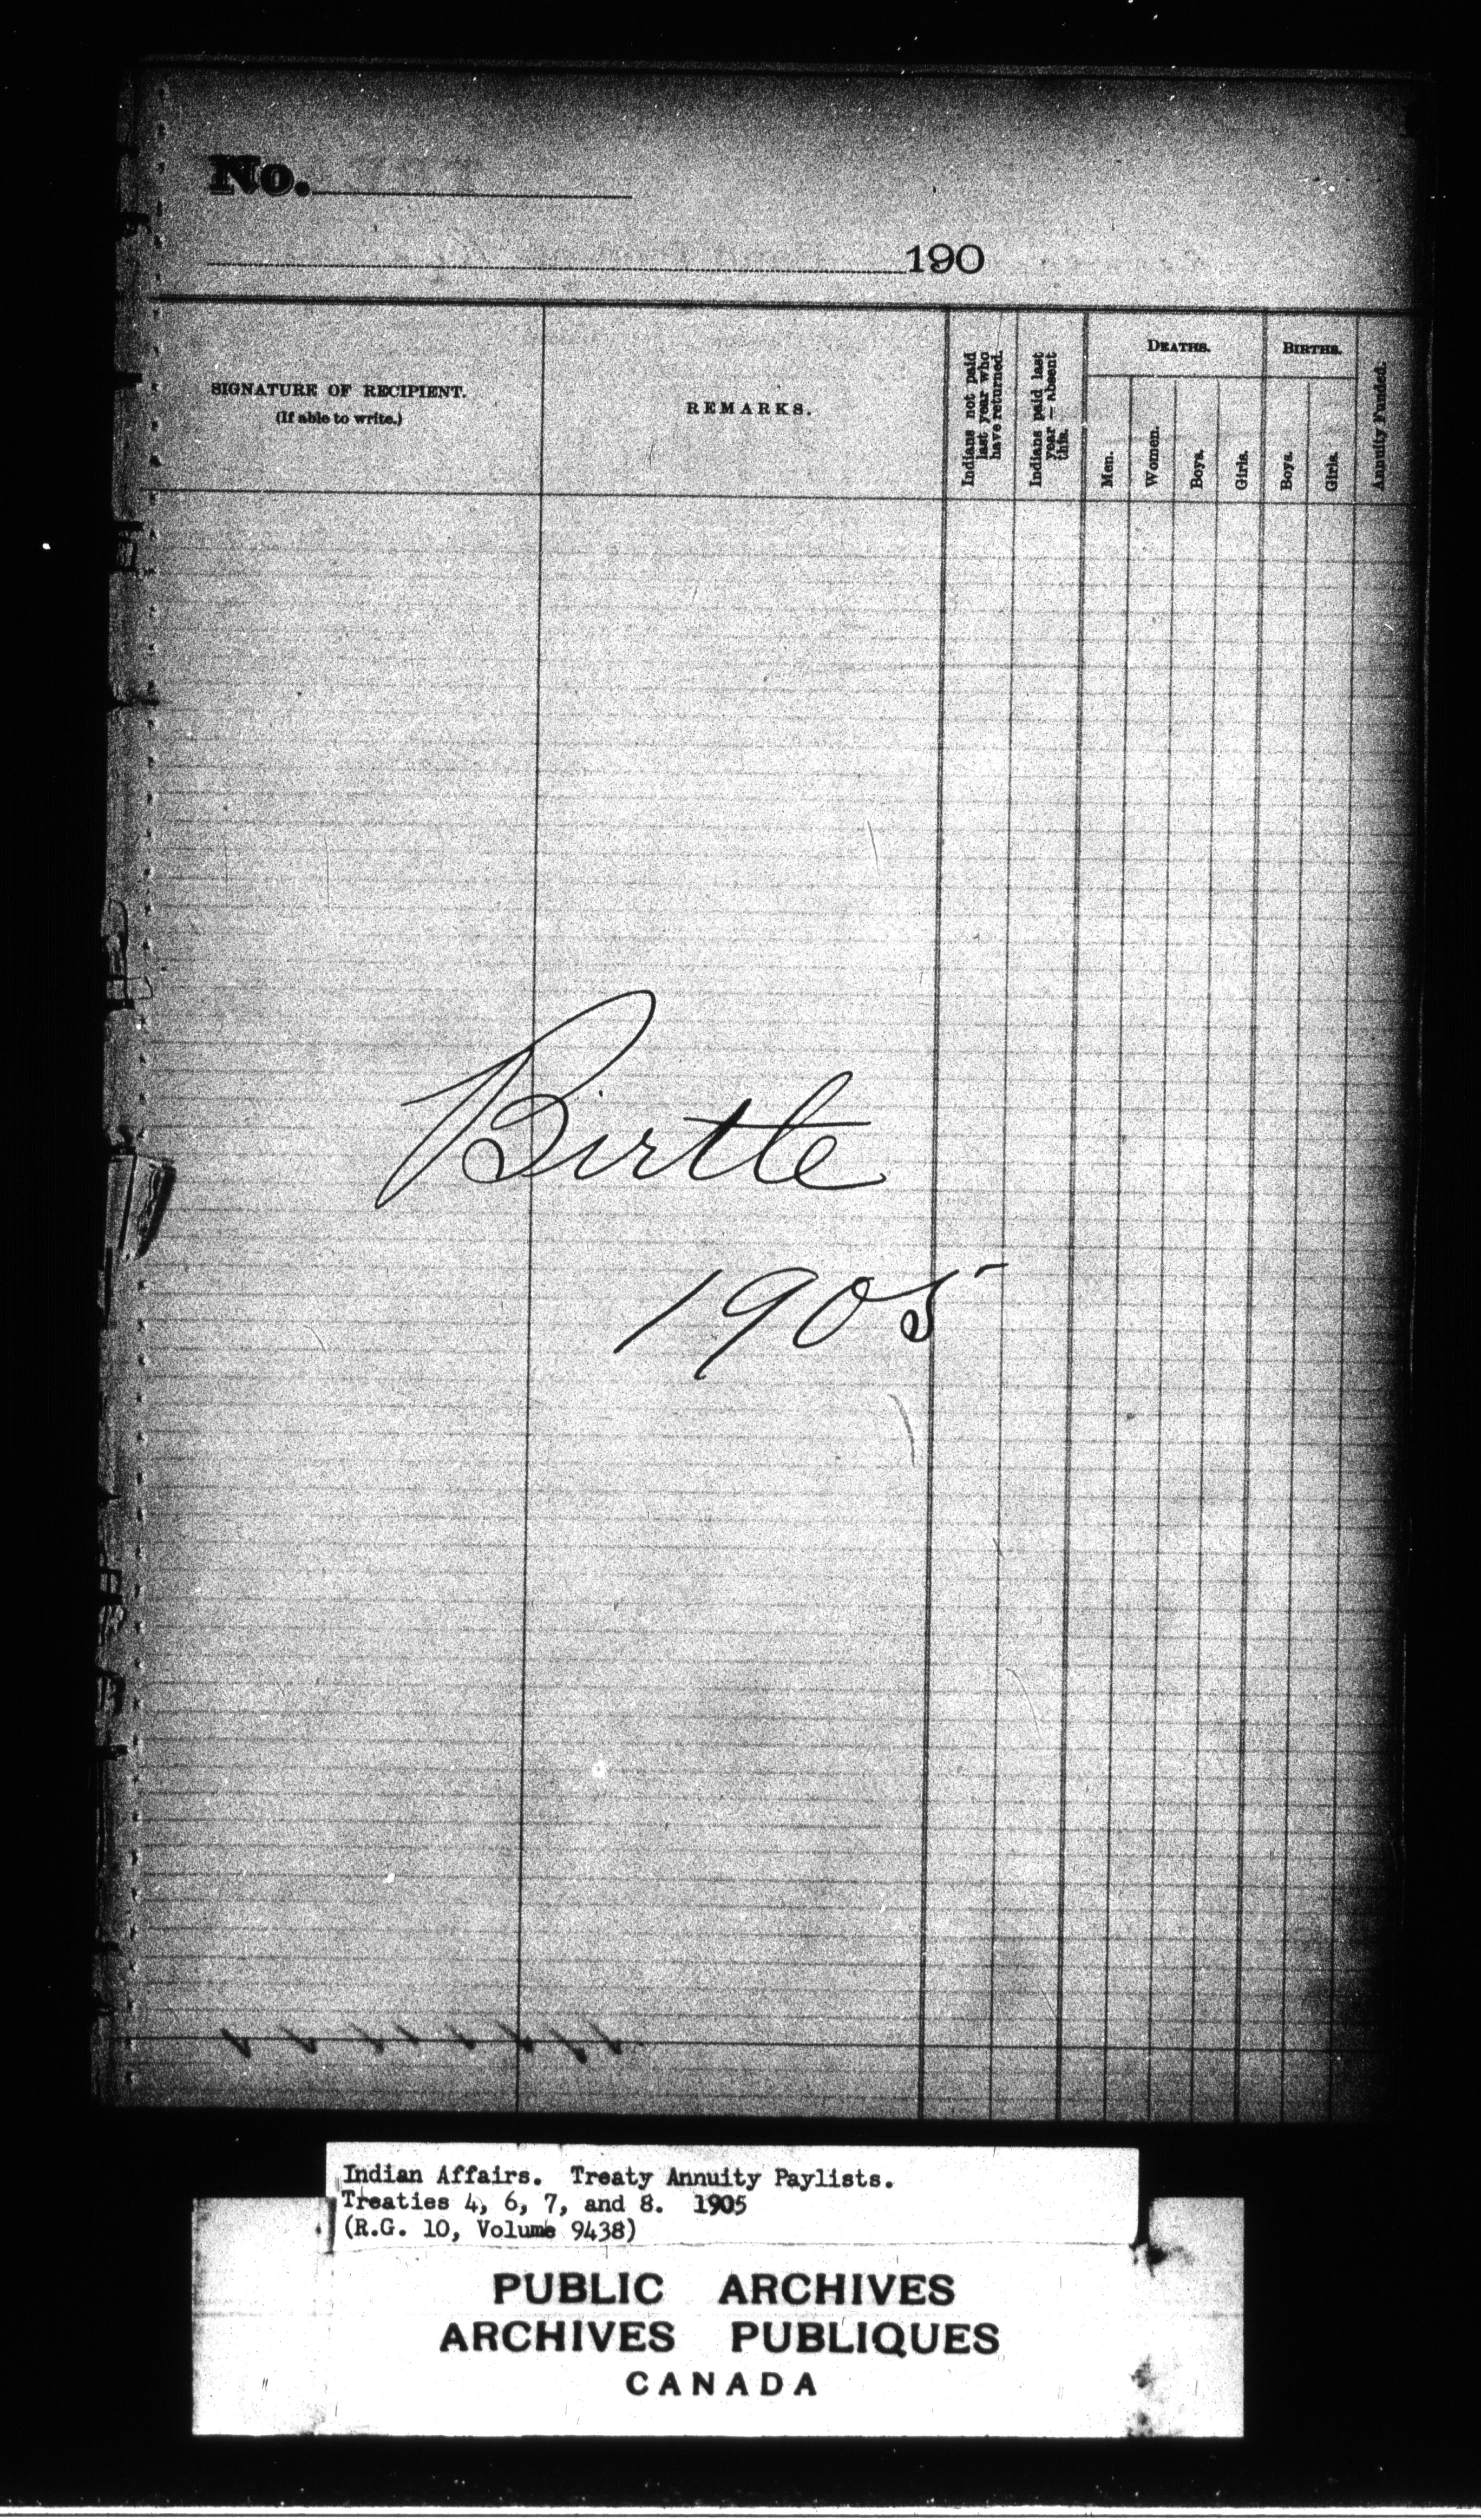 No.
190
SIGNATURE OF RECIPIENT.
(If able to write.)
REMARKS.
Indians not paid
last year who
have returned.
Indians paid last
year — absent
this.
DEATHS.
Men.
Women.
Boys.
Girls.
BIRTHS.
Boys.
Girls.
Annuity Funded.
Birtle
1905
Indian Affairs. Treaty Annuity Paylists.
Treaties 4, 6, 7, and 8. 1905
(R.G. 10, Volume 9438)
PUBLIC ARCHIVES
ARCHIVES PUBLIQUES
CANADA